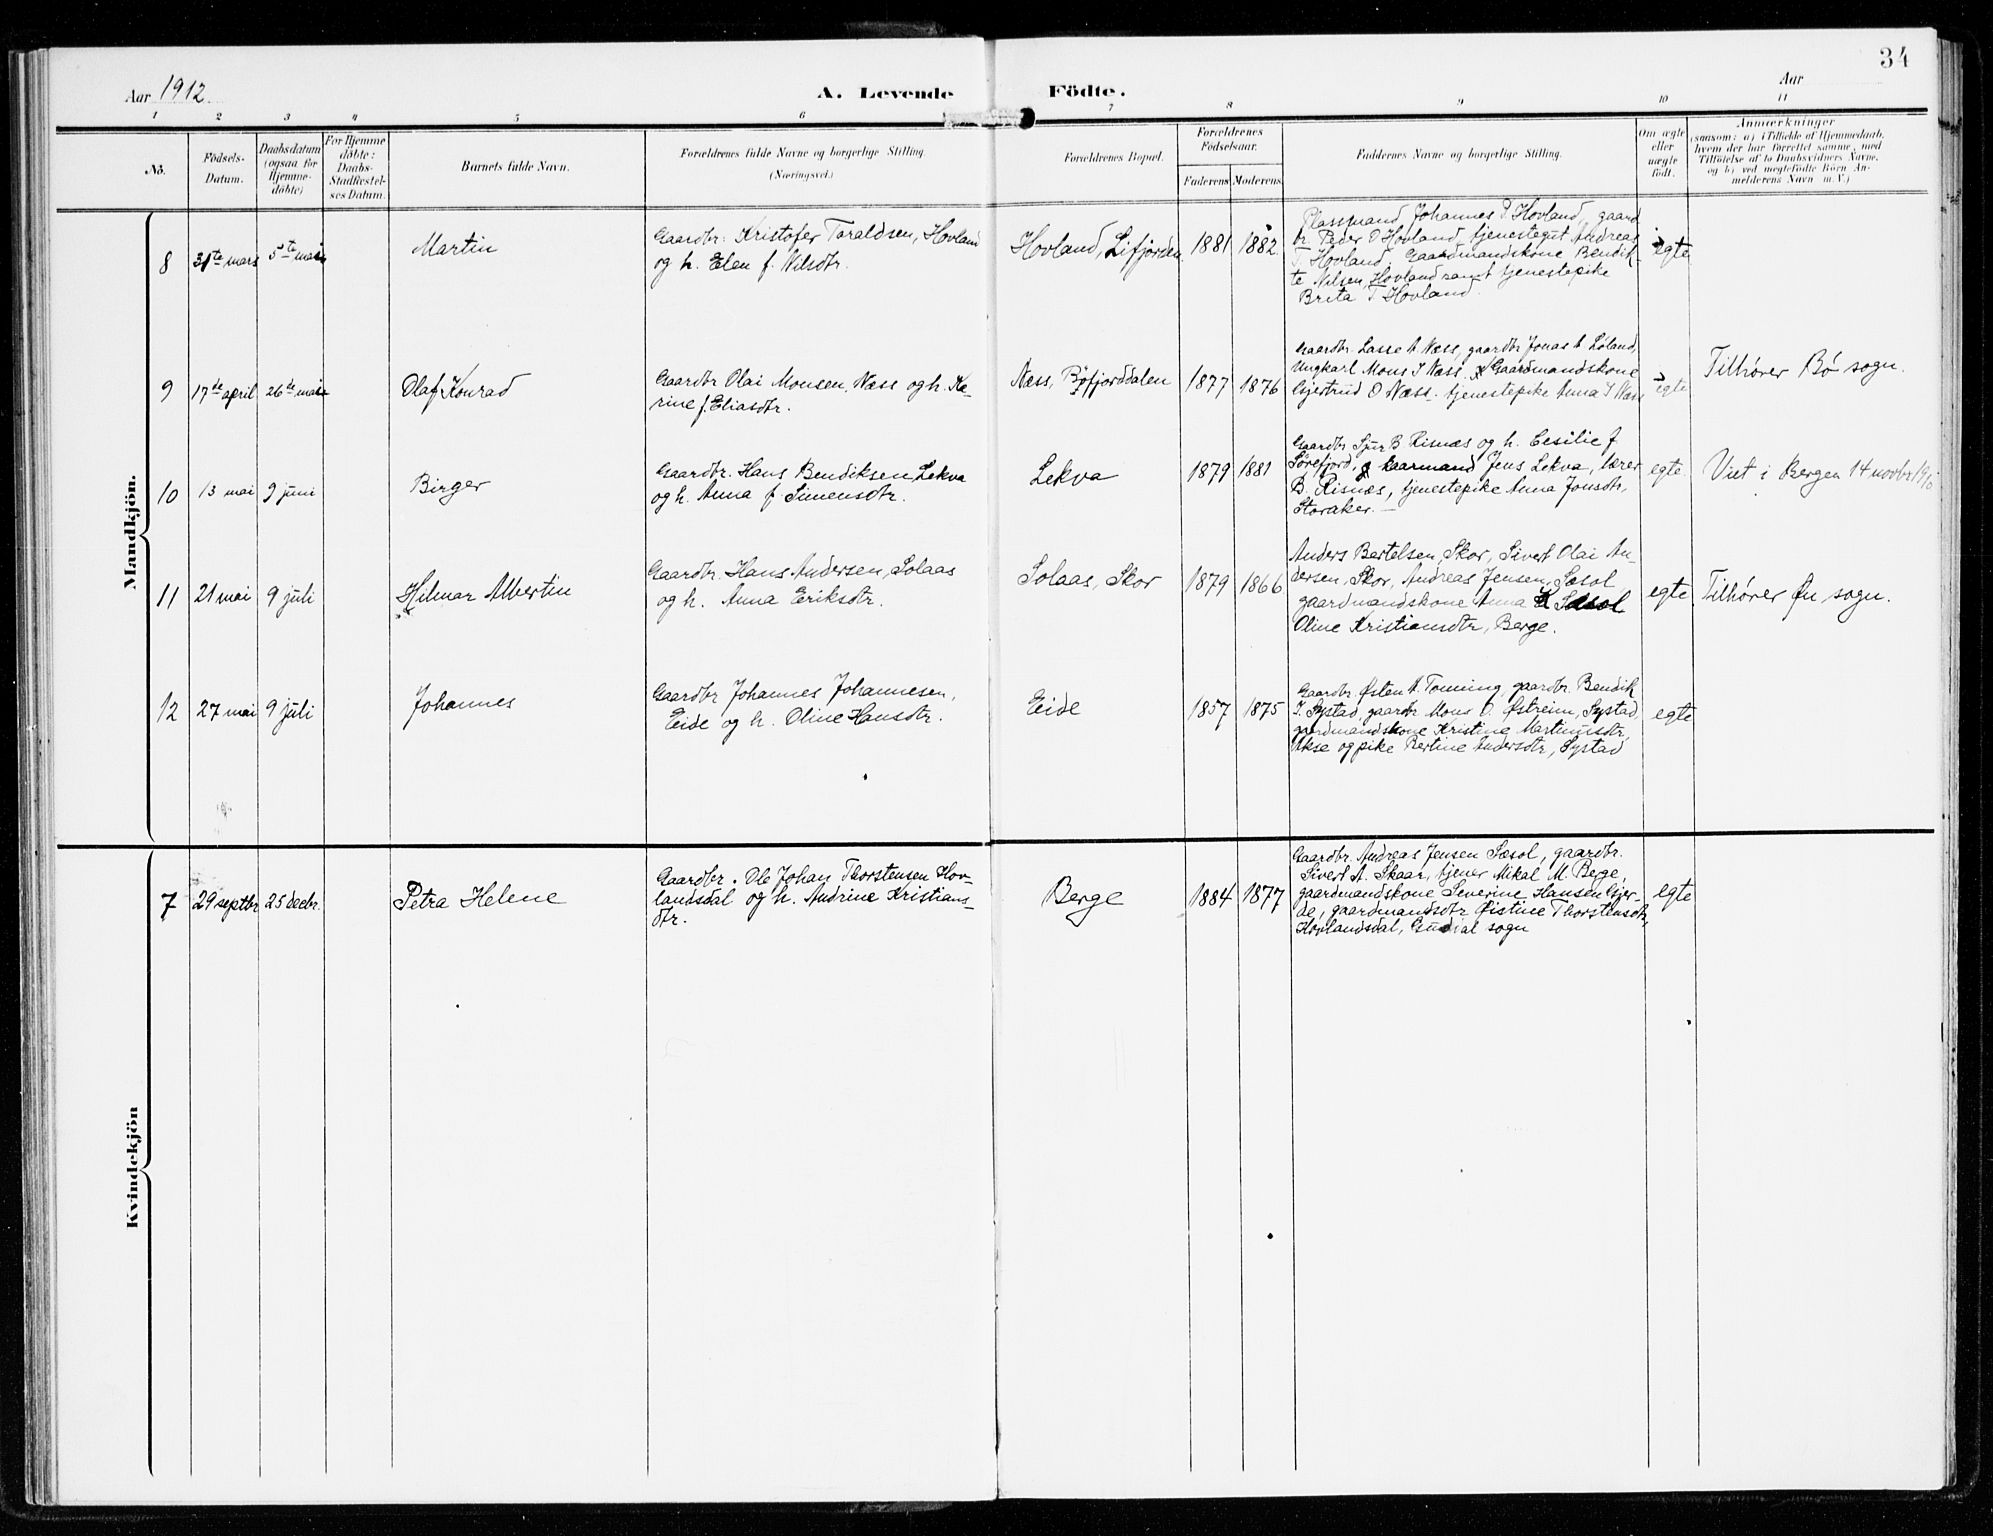 34
Aar 1912. A. Levende Födte. Aar
1 2 3 4 5 6 7 8 9 10 11
No. Födsels-Datum. Daabsdatum (ogsaa for Hjemme-döbte) For Hjemme döbte: Daabs-Stadfæstel-ses Datum. Barnets fulde Navn. Forældrenes fulde Navne og borgerlige Stilling. (Næringsvei.) Forældrenes Bopæl. Forældrenes Födselsaar. Faderens Moderens Faddernes Navne og borgerlige Stilling. Om ægte eller uægte födt. Anmærkninger (saasom: a) i Tilfælde af Hjemmedaab, hvem der har forrettet samme, med Tilföielse af to Daabsvidners Navne, og b) ved uægtefödte Börn An-melderens Navn m. V.)
Mandkjön.
8 31te mars 5te mai Martin
Gaardbr. Kristofer Toraldsen, Hovland
og h. Elen f. Nilsdtr.
Hovland, Lifjorden 1881 1882.
Plassmand Johannes P. Hovland, gaard
br. Peder O Hovland, tjenestegut Andreas
T. Hovland, Gaardmandskone Bendik-
te Nilsen, Hovland samt tjenestepike
Brita T Hovland.
egte
9 17de april 26de mai Olaf Konrad
Gaardbr Olai Monsen, Næss og h. Ka-
rine f. Eliasdtr.
Næss, Bøfjorddalen 1877 1876
Gaardbr. Lasse A. Næss, gaardbr Jonas A. Løland,
Ungkarl Mons I Næss. Gaardmandskone
Gjertrud O Næss. tjenestepike Anna I Næss
egte
Tilhører Bø sogn.
10 13 mai 9 juni Birger
Gaardbr. Hans Bendiksen Lekva
og h. Anna f. Simensdtr.
Lekva 1879 1881
Gaardbr. Sjur B Risnæs og h. Cesilie f
Sørefjord, kaarmand Jens Lekva, lærer
B. Risnæs, tjenestepike Anna Jonsdtr,
Storaker. —
egte.
Viet i Bergen 14 novbr
11 21 mai 9 juli Hilmar Albertin
Gaardbr. Hans Andersen, Solaas
og h. Anna Eriksdtr.
Solaas, Skor 1879 1866.
Anders Bertelsen, Skor, Sivert Olai An-
dersen, Skor, Andreas Jensen, Sæsol
gaardmandskone Anna Sæsol
Oline Kristiansdtr, Berge.
egte
Tilhører Øn sogn.
12 27 mai 9 juli Johannes
Gaardbr Johannes Johannesen,
Eide og h. Oline Hansdtr.
Eide 1857 1875
Gaardbr. Østen A. Tonning, gaardbr. Bendik
I. Systad, gaardbr Mons O. Østreim, Systad,
gaardmandskone Kristine Martinusdtr,
Akse og pike Bertine Andersdtr, Systad
egte
Kvindekjön
7 29 septbr 25 decbr. Petra Helene
Gaardbr. Ole Johan Thorstensen Hov-
landsdal og h. Andrine Kristians-
dtr.
Berge 1884 1877
Gaardbr. Andreas Jensen Sæsol, gaardbr.
Sivert A. Skaar, tjener Mikal M. Berge,
gaardmandskone Severine Hansen Gjer-
de, gaardmandsdtr Øistine Thorstensdtr,
Hovlandsdal, Guddal sogn
egte